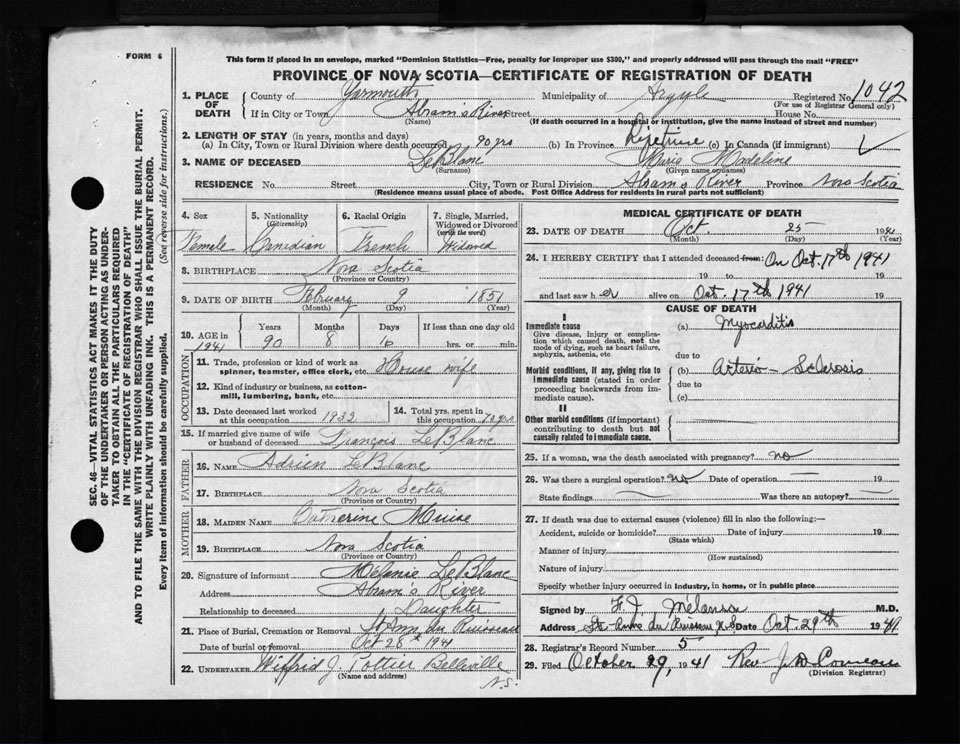 FORM 6
This form if placed in an envelope, marked "Dominion Statistics—Free, penalty for improper use $300," and properly addressed will pass through the mail "FREE"
PROVINCE OF NOVA SCOTIA—CERTIFICATE OF REGISTRATION OF DEATH
SEC. 46—VITAL STATISTICS ACT MAKES IT THE DUTY
OF THE UNDERTAKER OR PERSON ACTING AS UNDER-
TAKER TO OBTAIN ALL THE PARTICULARS REQUIRED
IN THE "CERTIFICATE OF REGISTRATION OF DEATH"
AND TO FILE THE SAME WITH THE DIVISION REGISTRAR WHO SHALL ISSUE THE BURIAL PERMIT.
WRITE PLAINLY WITH UNFADING INK. THIS IS A PERMANENT RECORD.
Every item of information should be carefully supplied. (See reverse side for instructions.)
1. PLACE OF DEATH
County of Yarmouth Municipality of Argyle Registered No. 1042
(For use of Registrar General only)
If in City or Town Abram's River Street House No.
(Name) (If death occurred in a hospital or institution, give the name instead of street and number)
2. LENGTH OF STAY (in years, months and days)
(a) In City, Town or Rural Division where death occurred 90 yrs (b) In Province Lifetime (c) In Canada (if immigrant)
3. NAME OF DECEASED LeBlanc Marie Madeline
(Surname) (Given name or names)
RESIDENCE No. Street City, Town or Rural Division Abram's River Province Nova Scotia
(Residence means usual place of abode. Post Office Address for residents in rural parts not sufficient)
4. Sex Female
5. Nationality (Citizenship) Canadian
6. Racial Origin French
7. Single, Married, Widowed or Divorced (write the word) Widowed
8. BIRTHPLACE Nova Scotia
(Province or Country)
9. DATE OF BIRTH February 9 1851
(Month) (Day) (Year)
10. AGE IN 1941 Years 90 Months 8 Days 16 If less than one day old hrs. or min.
OCCUPATION
11. Trade, profession or kind of work as spinner, teamster, office clerk, etc. House wife
12. Kind of industry or business, as cotton-mill, lumbering, bank, etc.
13. Date deceased last worked at this occupation 1932
14. Total yrs. spent in this occupation 70 yrs
15. If married give name of wife or husband of deceased François LeBlanc
FATHER
16. NAME Adrien LeBlanc
17. BIRTHPLACE Nova Scotia
(Province or Country)
MOTHER
18. MAIDEN NAME Catherine Muise
19. BIRTHPLACE Nova Scotia
(Province or Country)
20. Signature of informant Mélanie LeBlanc
Address Abram's River
Relationship to deceased Daughter
21. Place of Burial, Cremation or Removal St Ann du Ruisseau
Date of burial or removal Oct 28th 1941
22. UNDERTAKER Wilfrid J. Pottier Belleville
(Name and address) N.S.
MEDICAL CERTIFICATE OF DEATH
23. DATE OF DEATH Oct 25 1941
(Month) (Day) (Year)
24. I HEREBY CERTIFY that I attended deceased from: On Oct. 17th 1941
19 to 19
and last saw h er alive on Oct. 17th 1941 19
CAUSE OF DEATH
I
Immediate cause
Give disease, injury or complication which caused death, not the mode of dying, such as heart failure, asphyxia, asthenia, etc.
(a) Myocarditis
due to
Morbid conditions, if any, giving rise to immediate cause (stated in order proceeding backwards from immediate cause).
(b) Arterio-Sclerosis
due to
(c)
II
Other morbid conditions (if important) contributing to death but not causally related to immediate cause.
25. If a woman, was the death associated with pregnancy? no
26. Was there a surgical operation? no Date of operation
State findings Was there an autopsy?
27. If death was due to external causes (violence) fill in also the following:—
Accident, suicide or homicide? Date of injury 19
(State which)
Manner of injury
(How sustained)
Nature of injury
Specify whether injury occurred in industry, in home, or in public place
Signed by F. J. Melanson M.D.
Address Ste-Anne du Ruisseau N.S Date Oct. 29th 1941
28. Registrar's Record Number 5
29. Filed October 29, 1941 Rev J. D. Comeau
(Division Registrar)